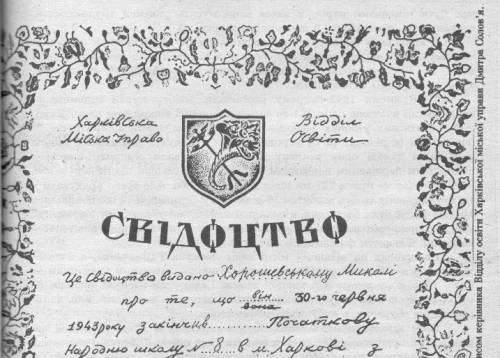 Харківська
Міська Управа
Відділ
Освіти
СВІДОЦТВО
Це Свідоцтво видано Хорошевському Миколі
про те, що він
вона 30-го червня
1943 року закінчив Початкову
Народню школу N 8 в м. Харкові з
сом керівника Відділу освіти Харківської міської управи Дмитра Солов'я.